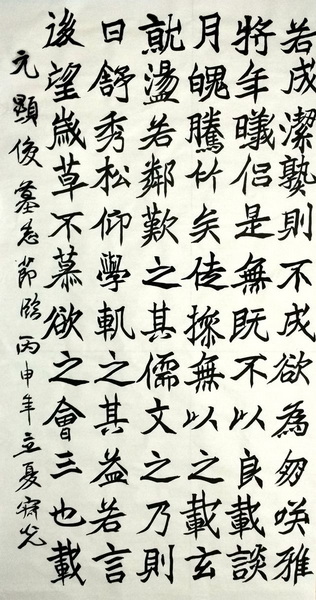 若成潔塾則不成欲為雅
將年曦侶是無既不以良載談
月魄騰竹矣無以之載玄
就盪若鄰歎之其儒文之乃則
日舒秀松仰學軌之其益若言
後望歲草不慕欲之會三也載
元顯俊墓志節臨丙申年立夏